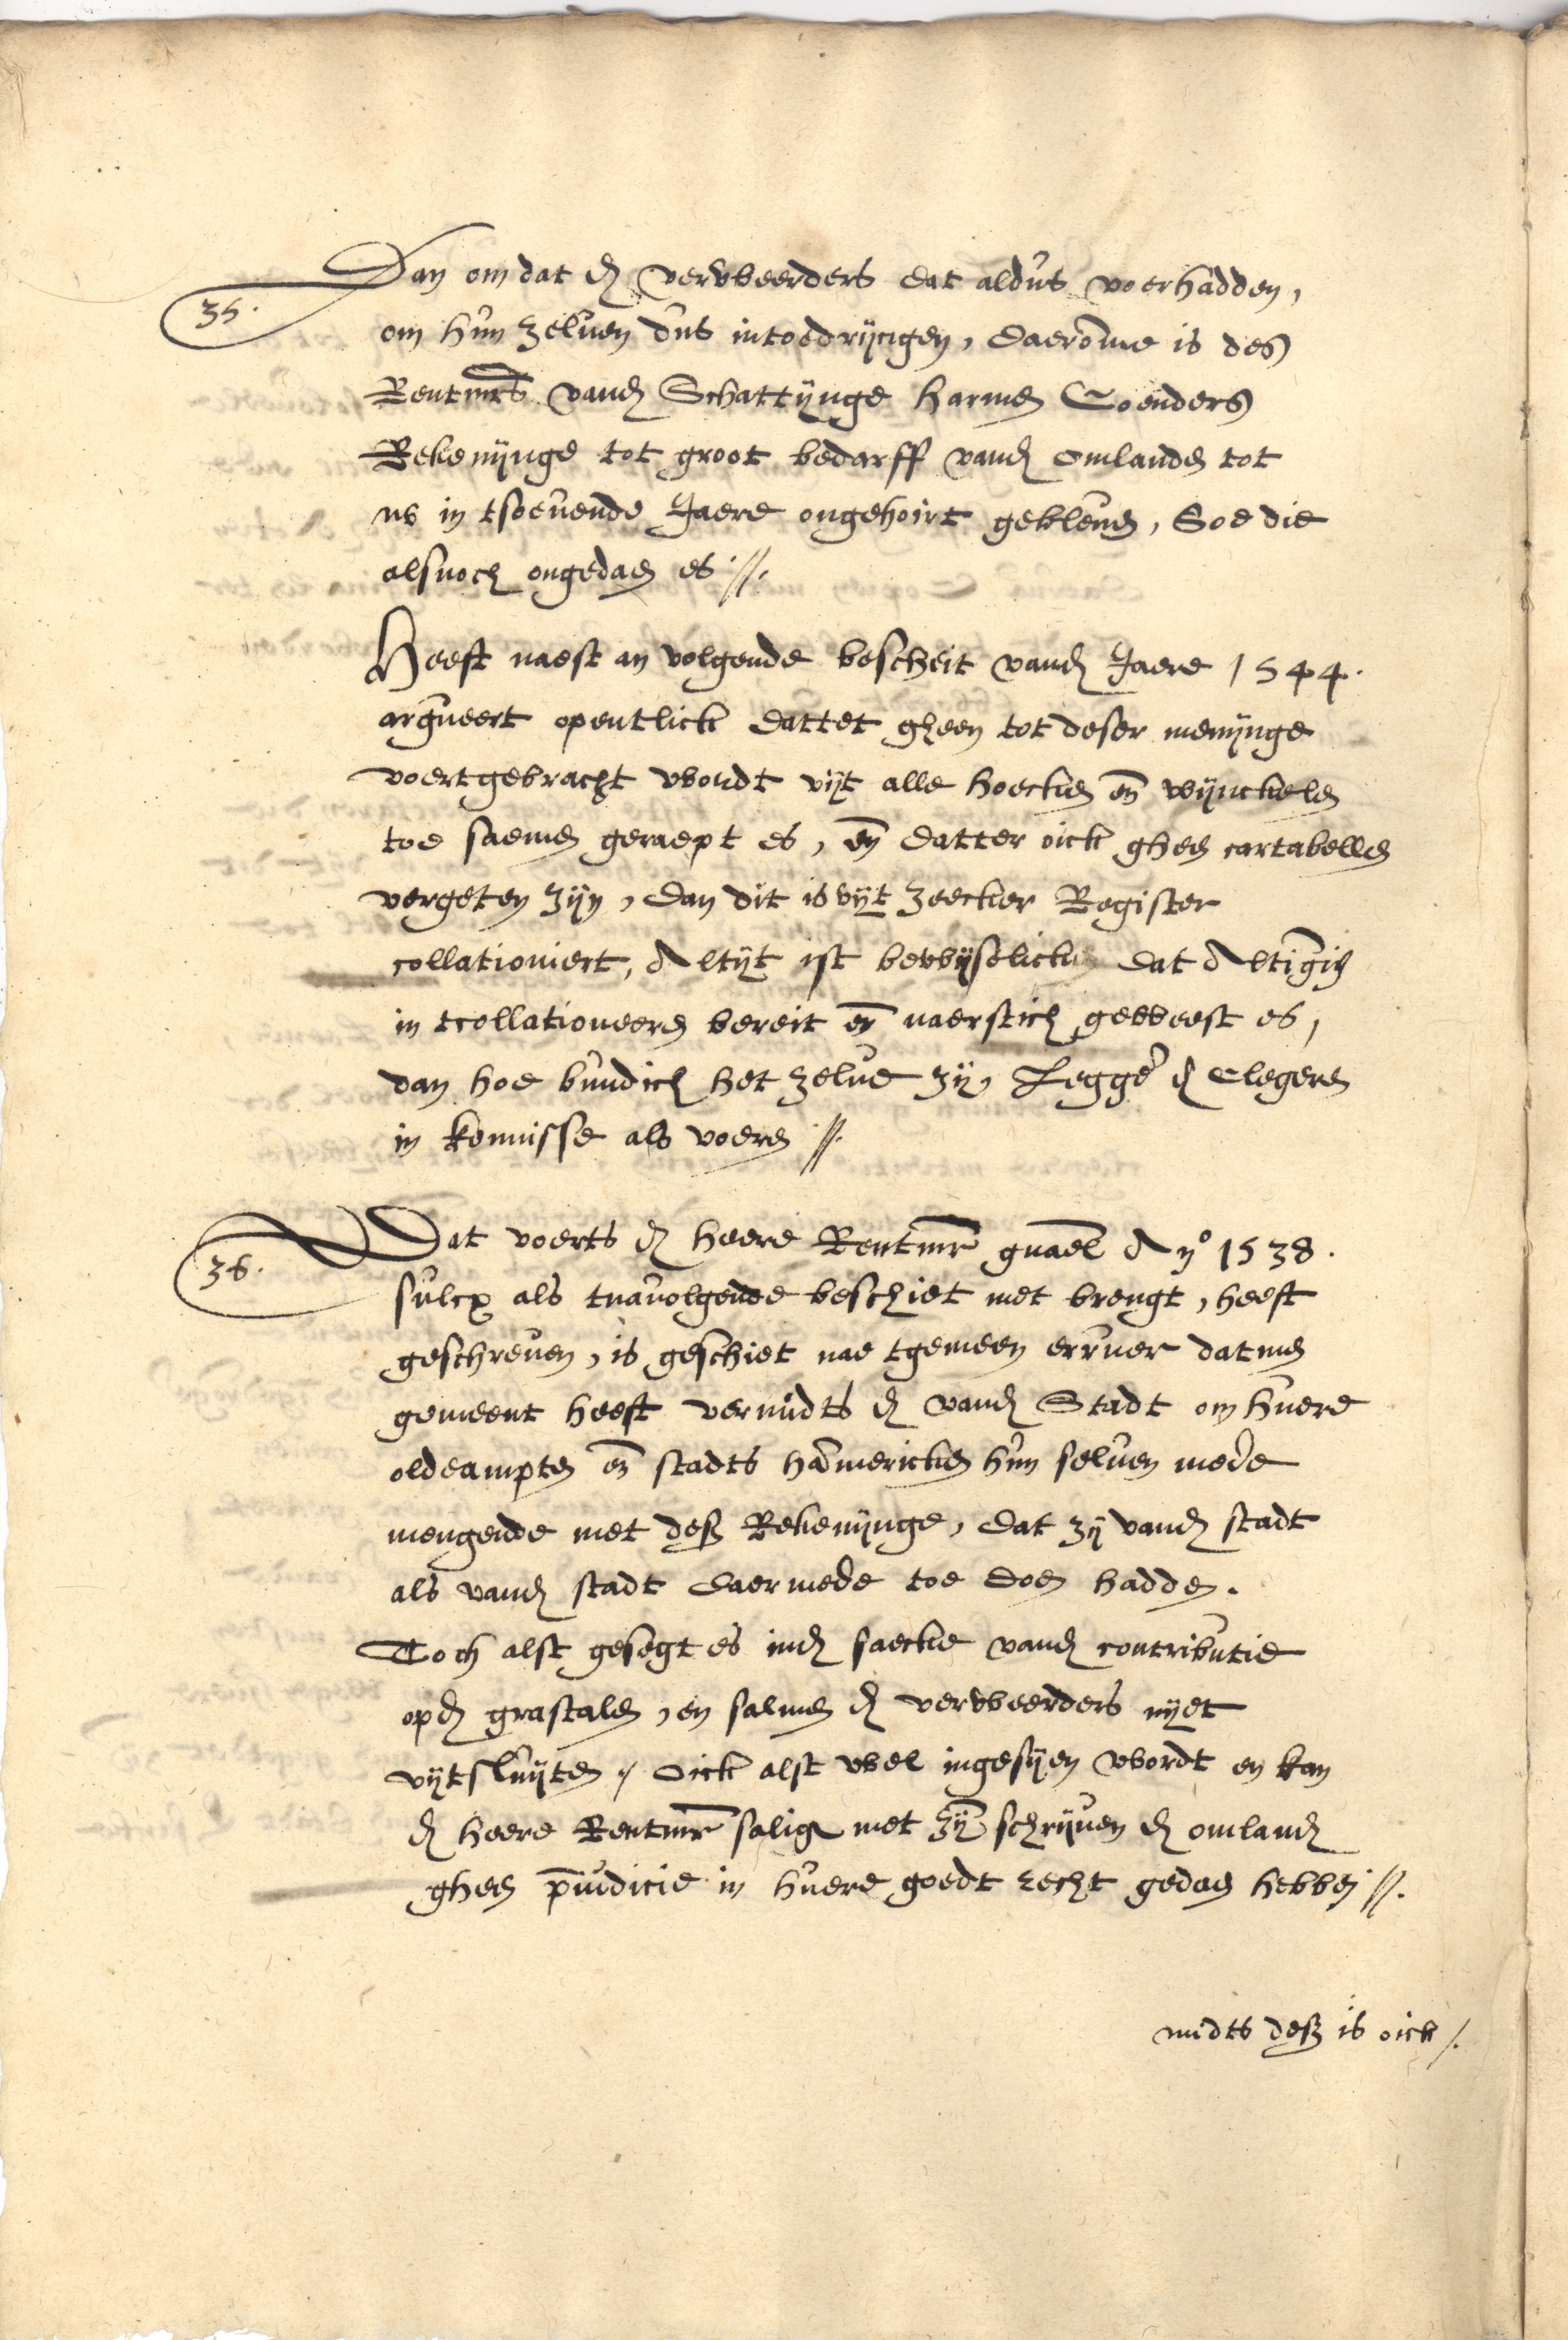 35.
Dan om dat de verweerders dat aldus voerhadden,
om hun zelven dus intoedryngen, daeromme is des
Rentmrs vande Schattynge Harmen Coenders
Rekenynge tot groot bedarff vande Omlanden tot
nv in tsoevende Jaere ongehoirt gebleven, Soe die
alsnoch ongedaen es //.
Heeft naest an volgende bescheit vande Jaere 1544.
argueert opentlick dattet gheen tot deser menynge
voertgebracht wordt vyt alle hoecken en wynckelen
toe saemen geraept es, en datter oick gheen cartabellen
vergeten zyn, dan dit is vyt zeecker Register
collationiert, Altyt ist bewyselick dat Altingh
in tcollationeeren bereit en naerstich geweest es,
dan hoe bundich het zelve zy, Legge de Clegeren
in kennisse als voeren //.
36.
Dat voerts de Heere Rentmr gnaemt Ano 1538.
sulcx als tnavolgende beschiet met brengt, heeft
geschreven, is geschiet nae tgemeen erruer datmen
gemeent heeft vermidts de vande Stadt om huere
oldeampten en stadts hammericken hun selven mede
mengende met dese Rekenynge, dat zy vande stadt
als vande stadt daermede toe doen hadden.
Toch alst gesegt es inde saecke vande contributie
opde grastalen, en salmen de verweerders nyet
vytsluyten, Oick alst wel ingesyen wordt en kan
de Heere Rentmr salig met zyn schryven de omlande
gheen prejudicie in huere goedt recht gedaen hebben //.
midts dese is oick /.